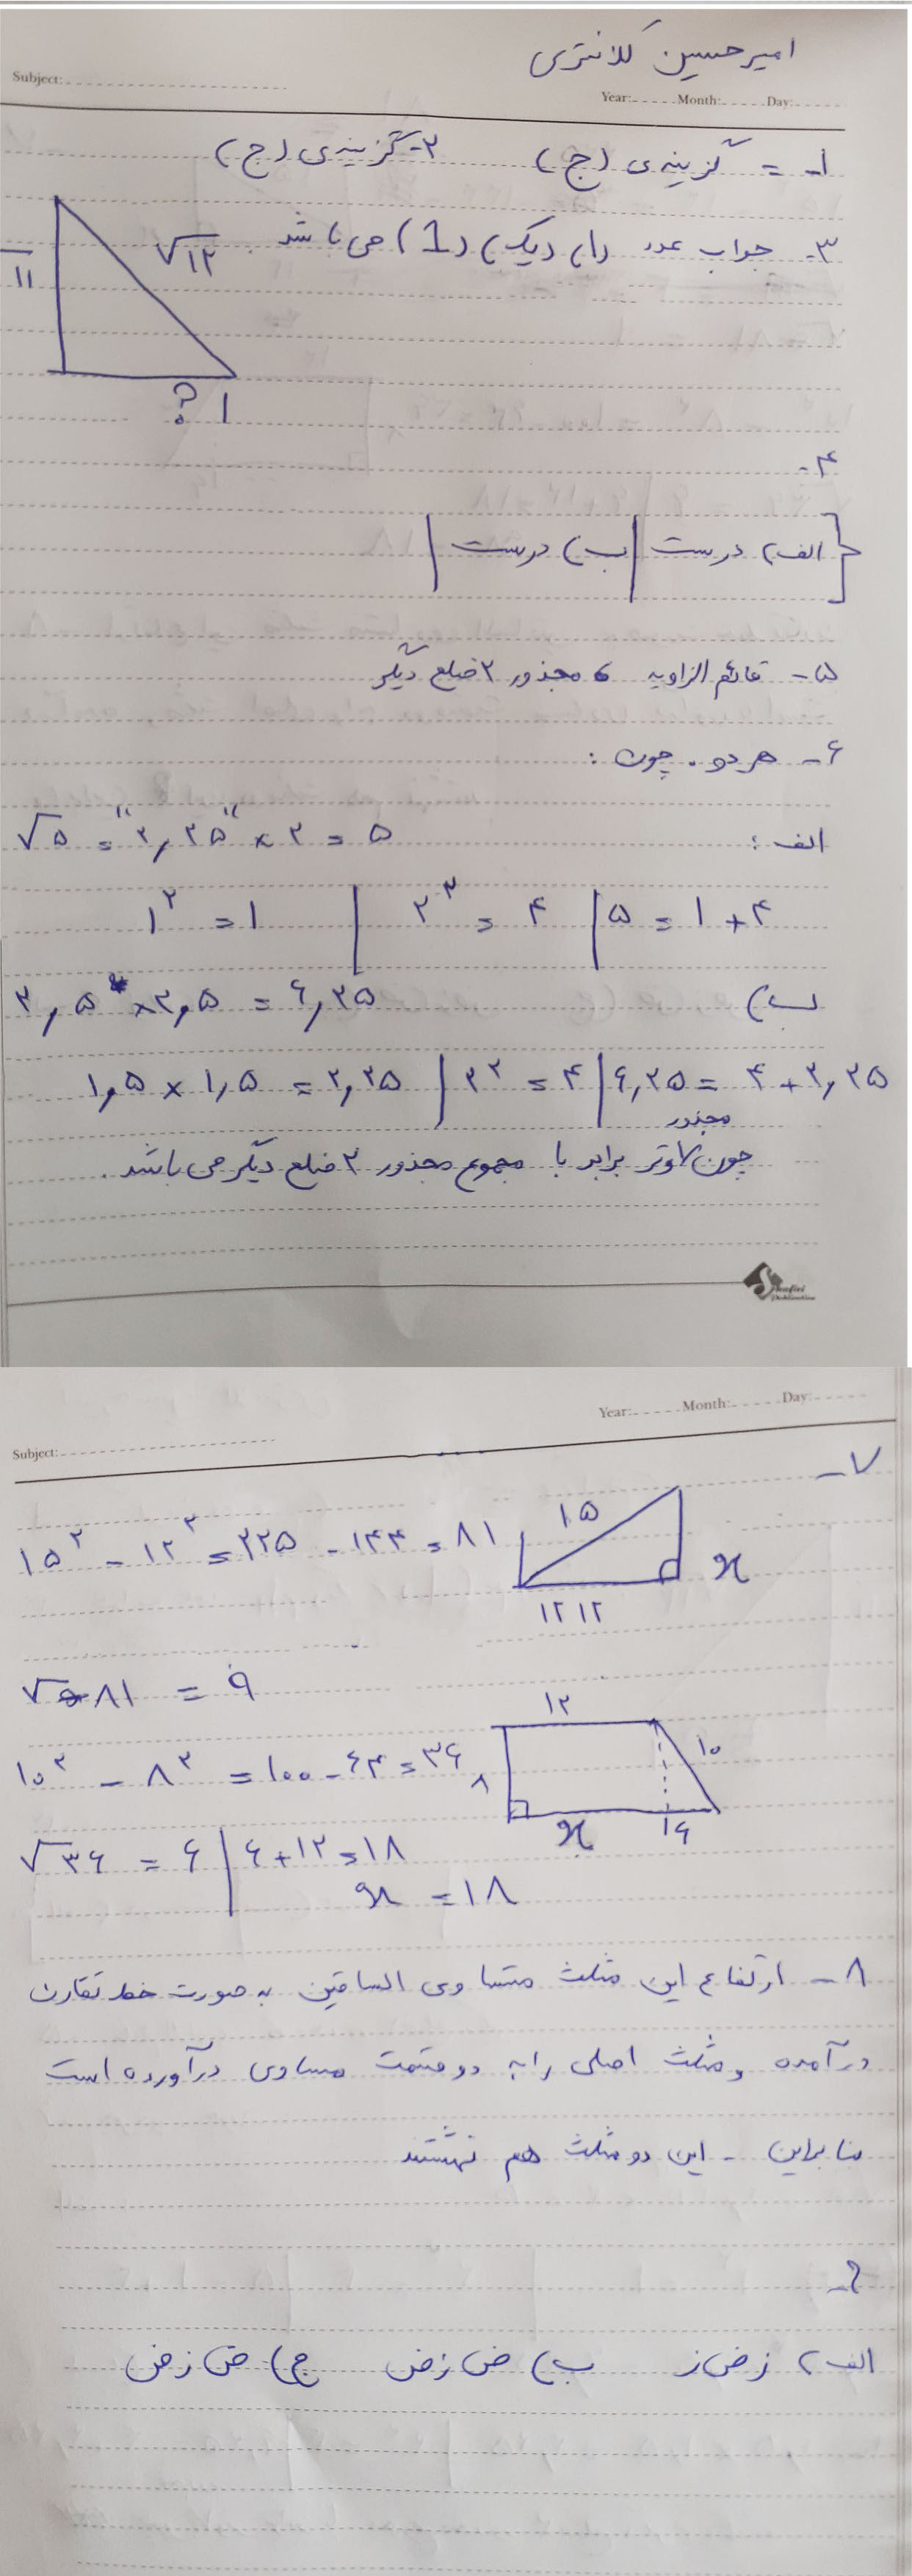 امیرحسین کلانتری
Subject:
Year: Month: Day:
۱- = گزینه‌ی (ج) ۲- گزینه‌ی (ج)
۳- جواب عدد (۱) (یک) (1) می باشد.
√۱۲
√۱۱
؟ ۱
۴-
الف) درست | ب) درست |
۵- قائم الزاویه ، مجذور ۲ ضلع دیگر
۶- هر دو . چون :
الف : √۵ = "۲,۲۵" × ۲ = ۵
۱^۲ = ۱ | ۲^۲ = ۴ | ۵ = ۱ + ۴
ب) ۲,۵ × ۲,۵ = ۶,۲۵
۱,۵ × ۱,۵ = ۲,۲۵ | ۲^۲ = ۴ | ۶,۲۵ = ۴ + ۲,۲۵
چون مجذور وتر برابر با مجموع مجذور ۲ ضلع دیگر می باشد .
Year: Month: Day:
Subject:
۷-
۱۵^۲ - ۱۲^۲ = ۲۲۵ - ۱۴۴ = ۸۱
۱۵
x
۱۲ ۱۲
√۸۱ = ۹
۱۲
۱۰^۲ - ۸^۲ = ۱۰۰ - ۶۴ = ۳۶
۸
۱۰
x ۱۶
√۳۶ = ۶ | ۶ + ۱۲ = ۱۸
x = ۱۸
۸- ارتفاع این مثلث متساوی الساقین به صورت خط تقارن
درآمده و مثلث اصلی را به دو قسمت مساوی درآورده است
بنابراین - این دو مثلث هم نهشتند
۹-
الف) ز ض ز ب) ض ز ض ج) ض ز ض